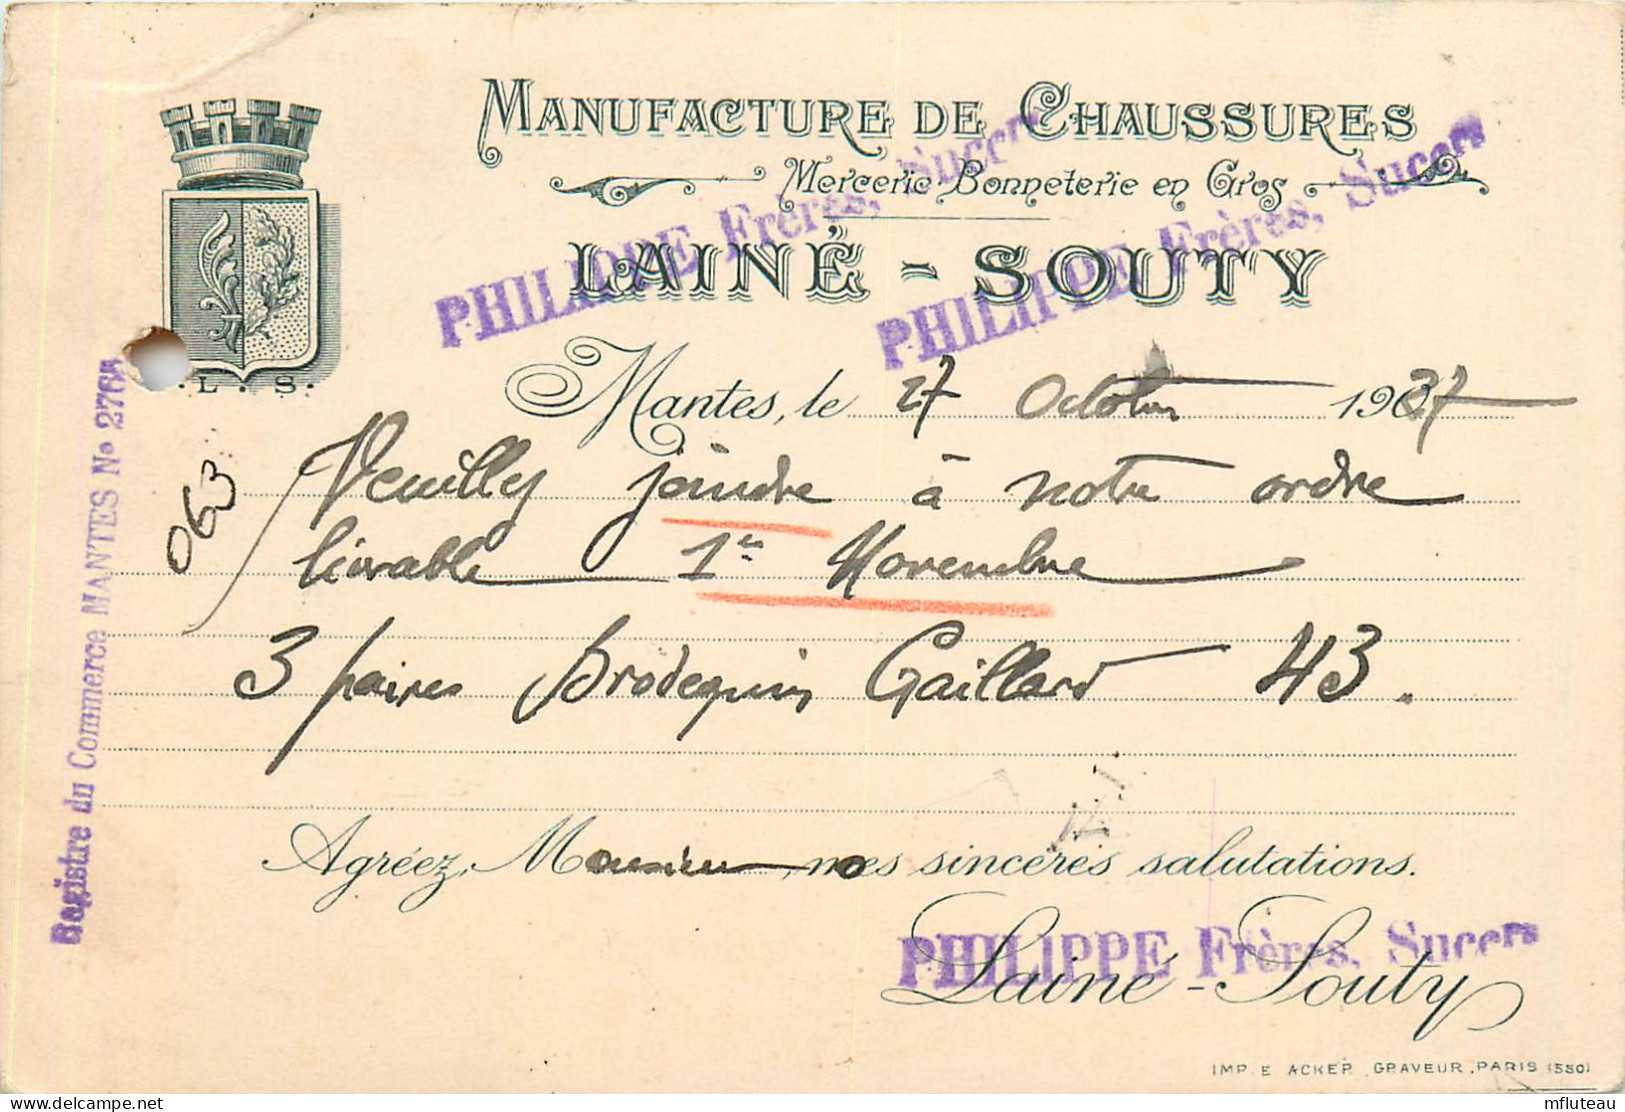 MANUFACTURE DE CHAUSSURES
Mercerie · Bonneterie en Gros
LAINÉ - SOUTY
PHILIPPE Frères, Succrs
PHILIPPE Frères, Succrs
.L.S.
Mantes, le 27 Octobre 1937
Veuillez joindre à notre ordre
livrable 1er Novembre
063
3 paires Brodequins Gaillard 43.
Agréez, Monsieur, nos sincères salutations.
PHILIPPE Frères, Succrs
Lainé-Souty
Registre du Commerce MANTES No 2764
IMP. E. ACKER, GRAVEUR, PARIS (550)
delcampe.net
mfluteau